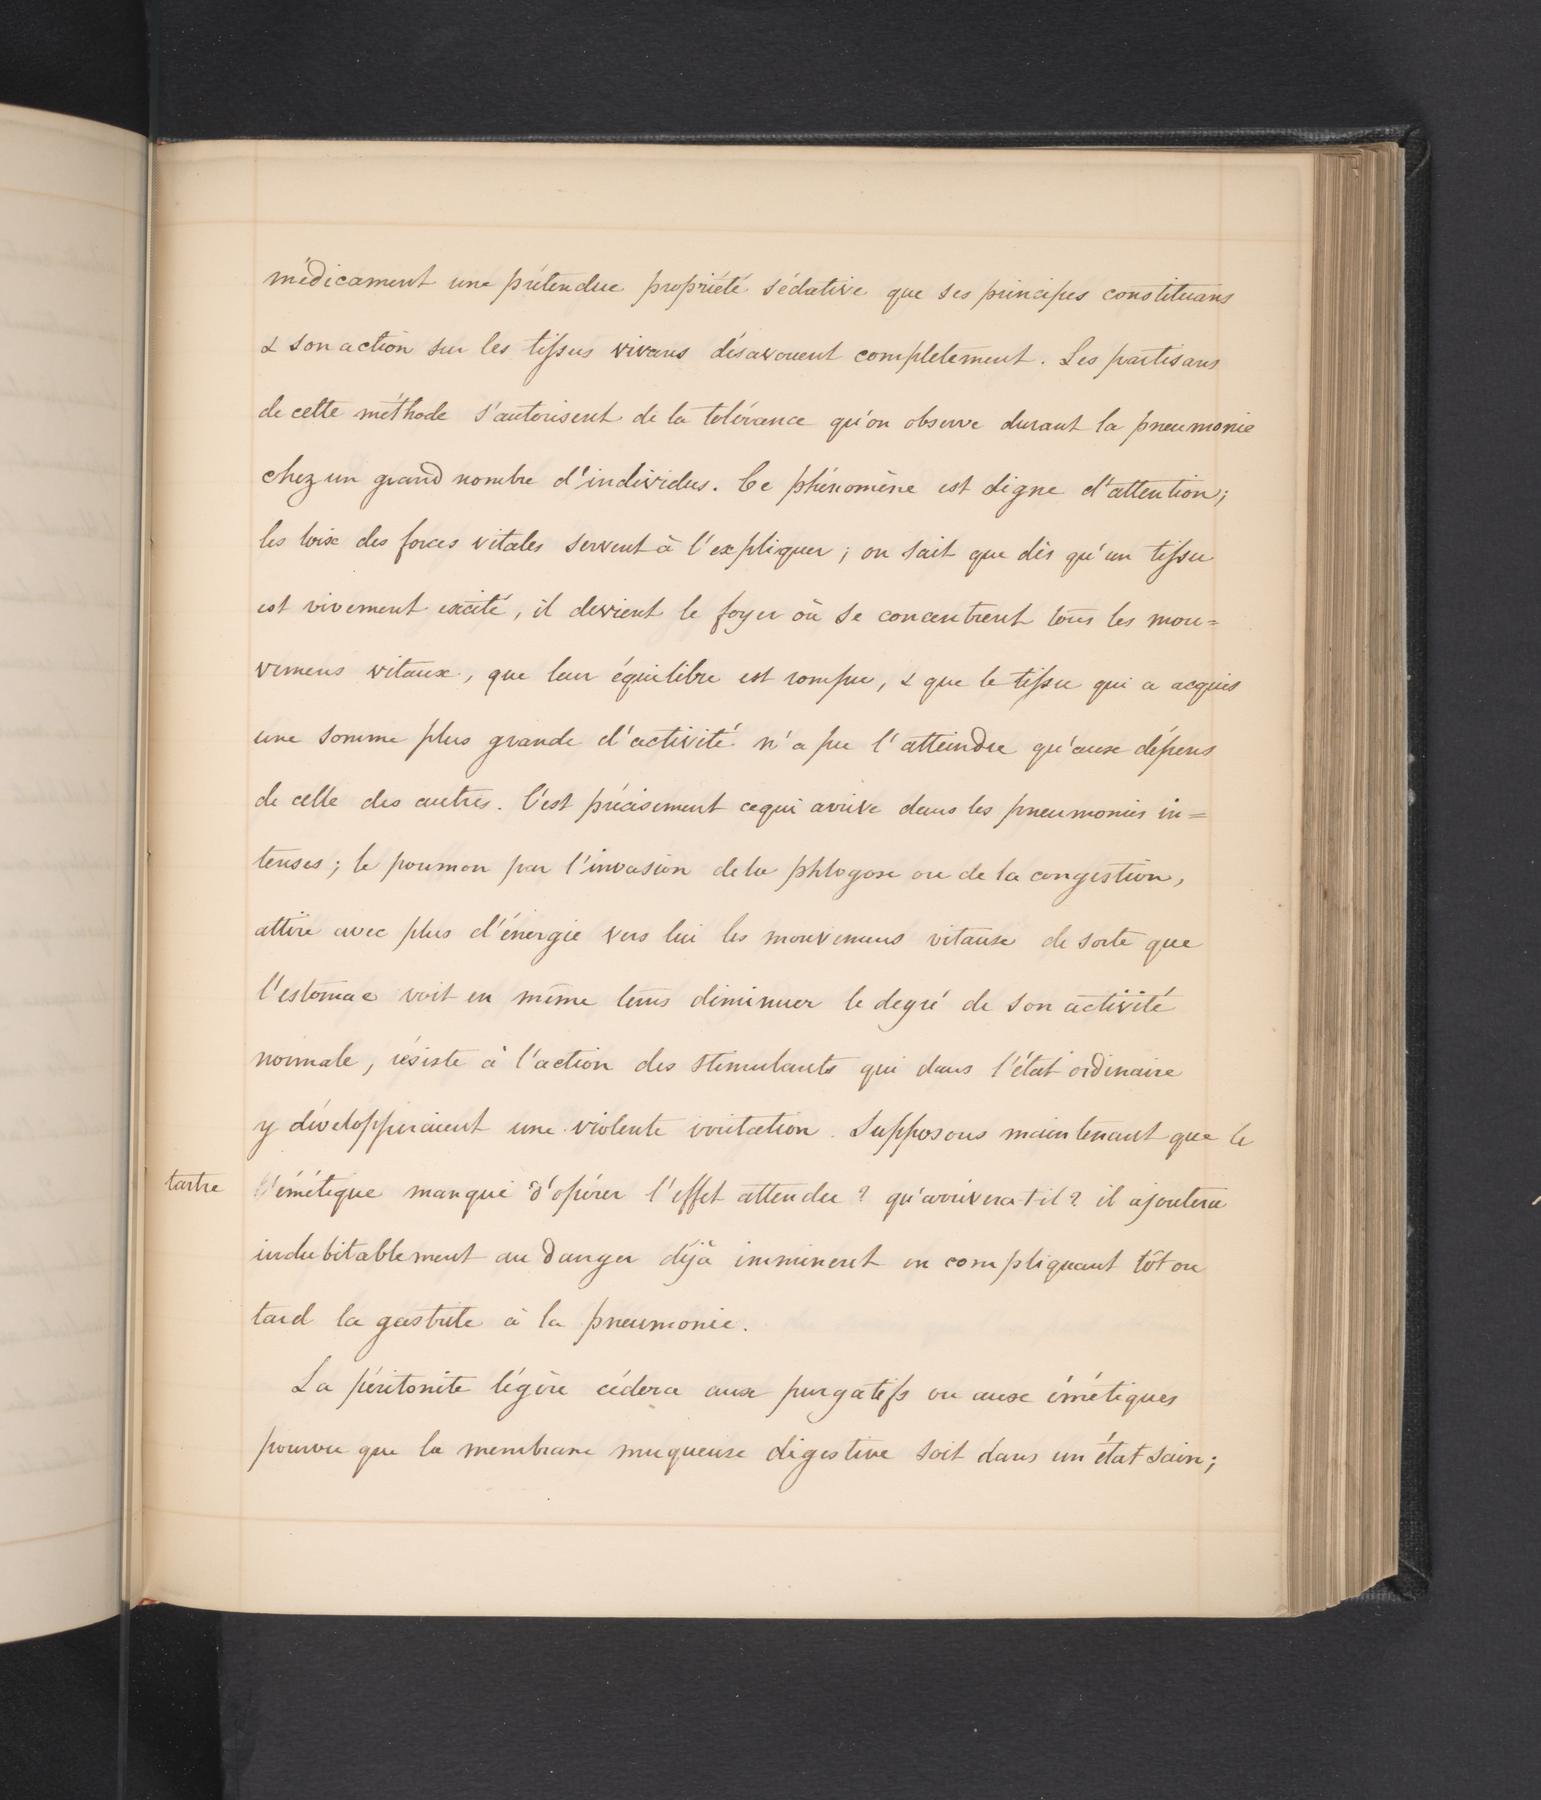 médicament une prétendue propriété sédative que ses principes constituans
& son action sur les tissus vivans désavouent completement. Les partisans
de cette méthode s'autorisent de la tolérance qu'on observe durant la pneumonie
chez un grand nombre d'individus. Ce phénomène est digne d'attention;
les loix des forces vitales servent à l'expliquer; on sait que dès qu'un tissu
est vivement excité, il devient le foyer où se concentrent tous les mou=
vemens vitaux, que leur équilibre est rompu, & que le tissu qui a acquis
une somme plus grande d'activité n'a pu l'atteindre qu'aux dépens
de celle des autres. C'est précisement ce qui arrive dans les pneumonies in=
tenses; le poumon par l'invasion de la phlogose ou de la congestion,
attire avec plus d'énergie vers lui les mouvemens vitaux de sorte que
l'estomac voit en même tems diminuer le degré de son activité
normale, résiste à l'action des stimulants qui dans l'état ordinaire
y développeraient une violente irritation. Supposons maintenant que le
tartre l'émétique manque d'opérer l'effet attendu? qu'arrivera t il? il ajoutera
indubitablement au danger déjà imminent en compliquant tôt ou
tard la gastrite à la pneumonie.
La péritonite légère cédera aux purgatifs ou aux émétiques
pourvu que la membrane muqueuse digestive soit dans un état sain;